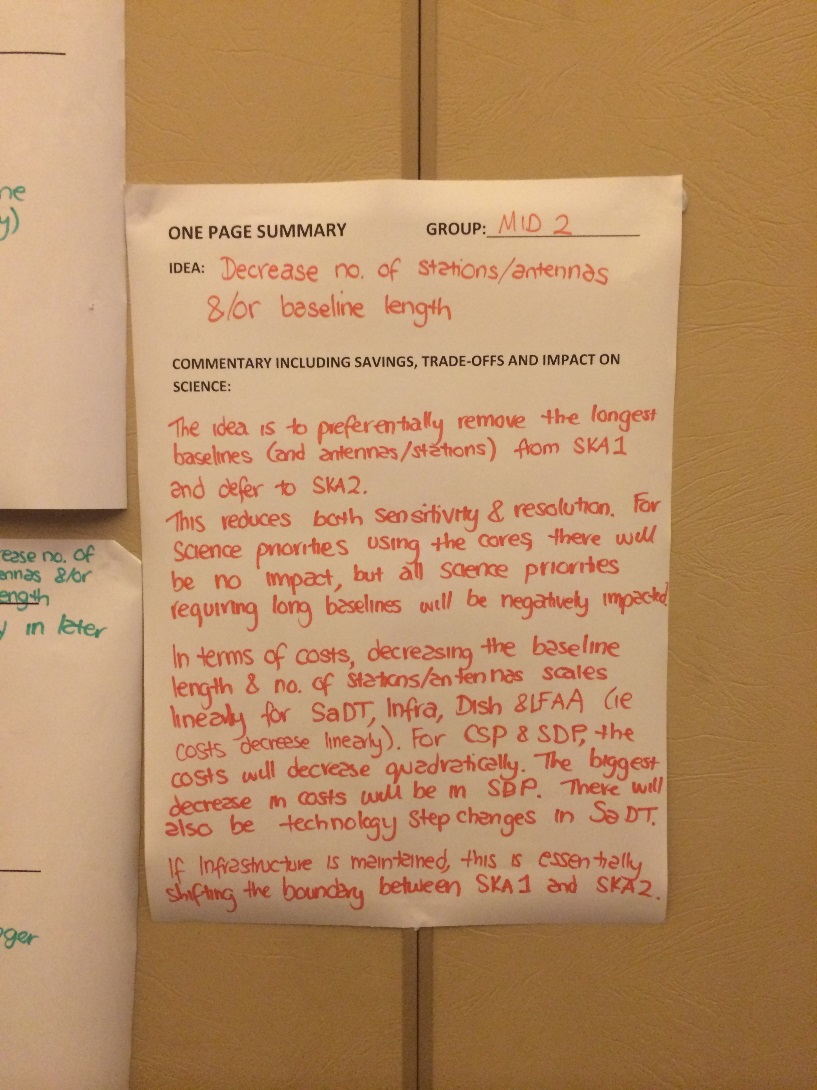 ne
y)
ONE PAGE SUMMARY GROUP: MID 2
IDEA: Decrease no. of stations/antennas
&/or baseline length
COMMENTARY INCLUDING SAVINGS, TRADE-OFFS AND IMPACT ON
SCIENCE:
The idea is to preferentially remove the longest
baselines (and antennas/stations) from SKA1
and defer to SKA2.
This reduces both sensitivity & resolution. For
science priorities using the cores, there will
be no impact, but all science priorities
requiring long baselines will be negatively impacted.
In terms of costs, decreasing the baseline
length & no. of stations/antennas scales
linearly for SaDT, Infra, Dish & LFAA (ie
costs decrease linearly). For CSP & SDP, the
costs will decrease quadratically. The biggest
decrease in costs will be in SDP. There will
also be technology step changes in SaDT.
If Infrastructure is maintained, this is essentially
shifting the boundary between SKA1 and SKA2.
ease no. of
ennas &/or
ength
y in later
ger